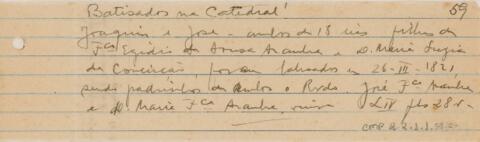 Batisados na Catedral! 59
Joaquim e José - ambos de 18 mês filhos de
Fco Egidio de Sousa Aranha e D. Maria Luzia
da Conceição, foram batisados em 26-III-1821,
sendo padrinhos de ambos o Rvdo. José Fco Aranha
e D. Maria Fca Aranha, L IV fls 28v.